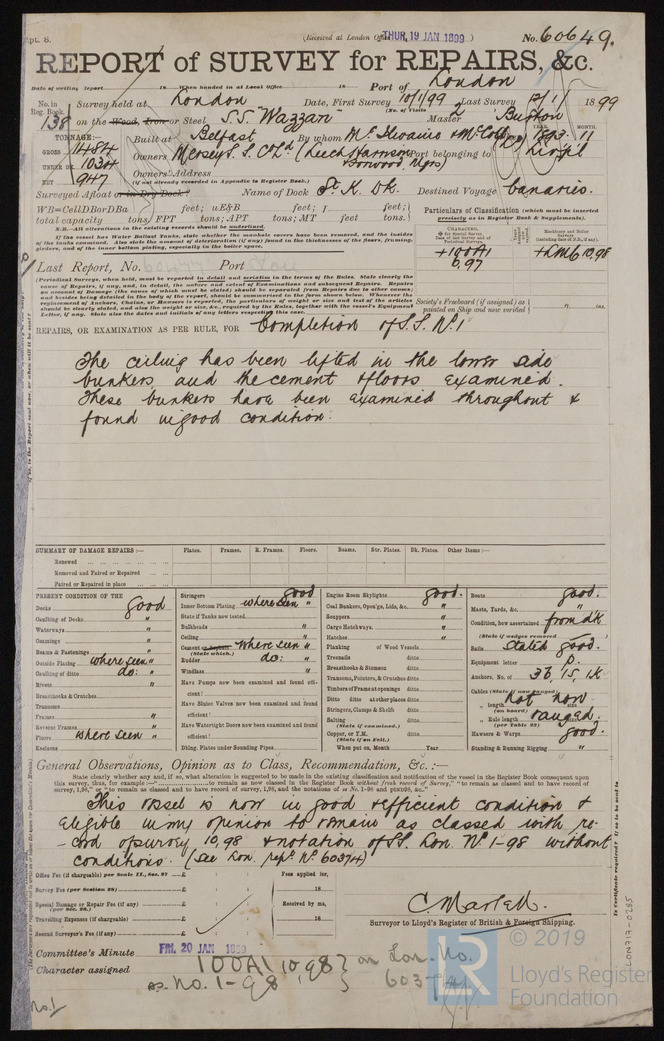 Rpt. 8.
(Received at London Office THUR. 19 JAN 1899 )
No. 60649.
REPORT of SURVEY for REPAIRS, &c.
Date of writing Report 18 When handed in at Local Office 18 Port of London
No. in Reg. Book. Survey held at London Date, First Survey 10/1/99 Last Survey 12/1/ 1899
(No. of Visits
138 on the Wood, Iron or Steel S.S. "Wazzan" Master Burton
TONNAGE:— Built at Belfast By whom McIlwaine & McColl YEAR 1893 MONTH. 11
GROSS 1484
UNDER DK. 1034 Owners Mersey S.S. Co Ld (Leech Harrison Forwood, Mgrs) Port belonging to
NET 947 Owners' Address
(if not already recorded in Appendix to Register Book.)
Surveyed Afloat or in Dry Dock? Name of Dock St. K. Dk. Destined Voyage Canaries.
WB=CellDBorDBa feet; uE&B feet; f feet;
total capacity tons; FPT tons; APT tons; MT feet tons.
N.B.—All alterations in the existing records should be underlined.
If the vessel has Water Ballast Tanks, state whether the manhole covers have been removed, and the insides
of the tanks examined. Also state the amount of deterioration (if any) found in the thicknesses of the floors, framing,
girders, and of the inner bottom plating, especially in the boiler space.
Particulars of Classification (which must be inserted
precisely as in Register Book & Supplements).
+100A1
6,97
+LMC 10,98
Last Report, No. Port
(Periodical Surveys, when held, must be reported in detail and seriatim in the terms of the Rules. State clearly the
cause of Repairs, if any, and, in detail, the nature and extent of Examinations and subsequent Repairs. Repairs
on account of Damage (the cause of which must be stated) should be separated from Repairs due to other causes;
and besides being detailed in the body of the report, should be summarized in the form shewn below.
Letter, if any. State also the dates and initials of any letters respecting this case.
Society's Freeboard (if assigned) as
painted on Ship and now verified ft. ins.
REPAIRS, OR EXAMINATION AS PER RULE, FOR Completion of S.S. No. 1
The ceiling has been lifted in the lower side
bunkers and the cement & floors examined.
These bunkers have been examined throughout &
found in good condition.
SUMMARY OF DAMAGE REPAIRS:— Plates. Frames. R. Frames. Floors. Beams. Str. Plates. Dk. Plates. Other Items:—
Renewed
Removed and Faired or Repaired
Faired or Repaired in place
PRESENT CONDITION OF THE
Decks good
Caulking of Decks "
Waterways "
Comings "
Beams & Fastenings "
Outside Plating where seen "
Caulking of ditto do: "
Rivets "
Breasthooks & Crutches
Transoms
Frames "
Reverse Frames
Floors where seen "
Keelsons
Stringers good
Inner Bottom Plating where seen "
State if Tanks now tested.
Bulkheads "
Ceiling "
Cement or Asphalt where seen "
(State which.)
Rudder do: "
Windlass "
Have Pumps now been examined and found efficient?
Have Sluice Valves now been examined and found efficient?
Have Watertight Doors now been examined and found efficient?
Dblng. Plates under Sounding Pipes
Engine Room Skylights good.
Coal Bunkers, Open'gs, Lids, &c. "
Scuppers "
Cargo Hatchways. "
Hatches "
Planking of Wood Vessels
Treenails ditto
Breasthooks & Stemson ditto
Transoms, Pointers, & Crutches ditto
Timbers of Frame at openings ditto
Ditto ditto at other places ditto
Stringers, Clamps & Shelfs ditto
Salting ditto
(State if examined.)
Copper, or Y.M. ditto
(State if on Felt.)
When put on, Month Year
Boats good.
Masts, Yards, &c. "
Condition, how ascertained from dk
(State if wedges removed
Sails Stated good.
Equipment letter P.
Anchors, No. of 3B, 1S, 1K
Cables (State if now ranged) not now
" length (on board) size
" Rule length (per Table 22) size ranged.
Hawsers & Warps good.
Standing & Running Rigging "
General Observations, Opinion as to Class, Recommendation, &c.:—
State clearly whether any and, if so, what alteration is suggested to be made in the existing classification and notification of the vessel in the Register Book consequent upon
this survey, thus, for example:—" to remain as now classed in the Register Book without fresh record of Survey," "to remain as classed and to have record of
survey, 1,98," or "to remain as classed and to have record of survey, 1,98, and the notations of ss No. 1-98 and ptndND98, &c."
This vessel is now in good & efficient condition &
eligible in my opinion to remain as classed with re-
-cord of survey 10,98 & notation of SS. Lon. No. 1-98 without
conditions. (See Lon. rept. No. 60374)
Office Fee (if chargeable) per Scale II., Sec. 27 £
Survey Fee (per Section 28) £
Special Damage or Repair Fee (if any) £
(per Sec. 28.)
Travelling Expenses (if chargeable) £
Second Surveyor's Fee (if any) £
Fees applied for,
18
Received by me,
18
Surveyor to Lloyd's Register of British & Foreign Shipping.
Committee's Minute FRI. 20 JAN 1899
Character assigned 100A1 10,98 } on Lon. No.
ss. No. 1-98 }
No. 1
LON717-0285
Is Certificate required? If so to be sent to
LR
© 2019
Lloyd's Register
Foundation